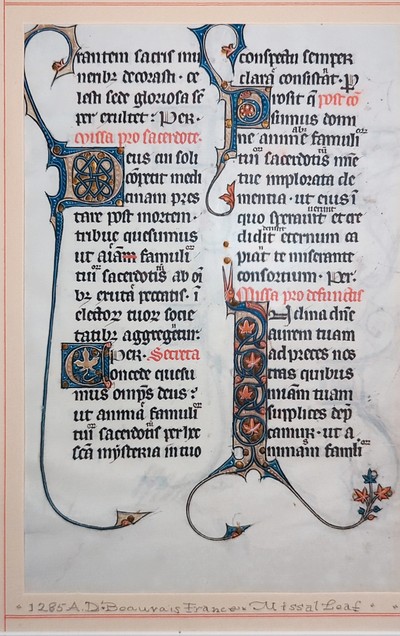 rantem sacris mu
neribꝫ decorasti · ce
lesti sede gloriosa sē
per exultet : Per ·
Missa pro sacerdote ·
Deus cui soli
cōpetit medi
cinam pres
tare post mortem ·
tribue quesumus
ut aīam famuli
tui sacerdotis ab oī
bꝫ exuta peccatis · ī
electoꝝ tuoꝝ socie
tatibꝫ aggregetur ·
Per · Secreta
Concede quesu
mus omps deus :
ut animā famuli
tui sacerdotis per hec
scā mysteria in tuo
conspectu semper
clara consistat · P
Prosit q̄ post cō
sumus domi
ne anime famuli
tui sacerdotis mīe
tue implorata cle
mentia · ut eius ī
quo sperauit et cre
didit eternum ca
piat te miserante
consortium · Per ·
Missa pro defunctis
Inclina dn̄e
aurem tuam
ad preces nos
tras quibus
mīam tuam
supplices dep̄
camur · ut a
nimam famłi
1285 A.D. Beauvais France · Missal Leaf